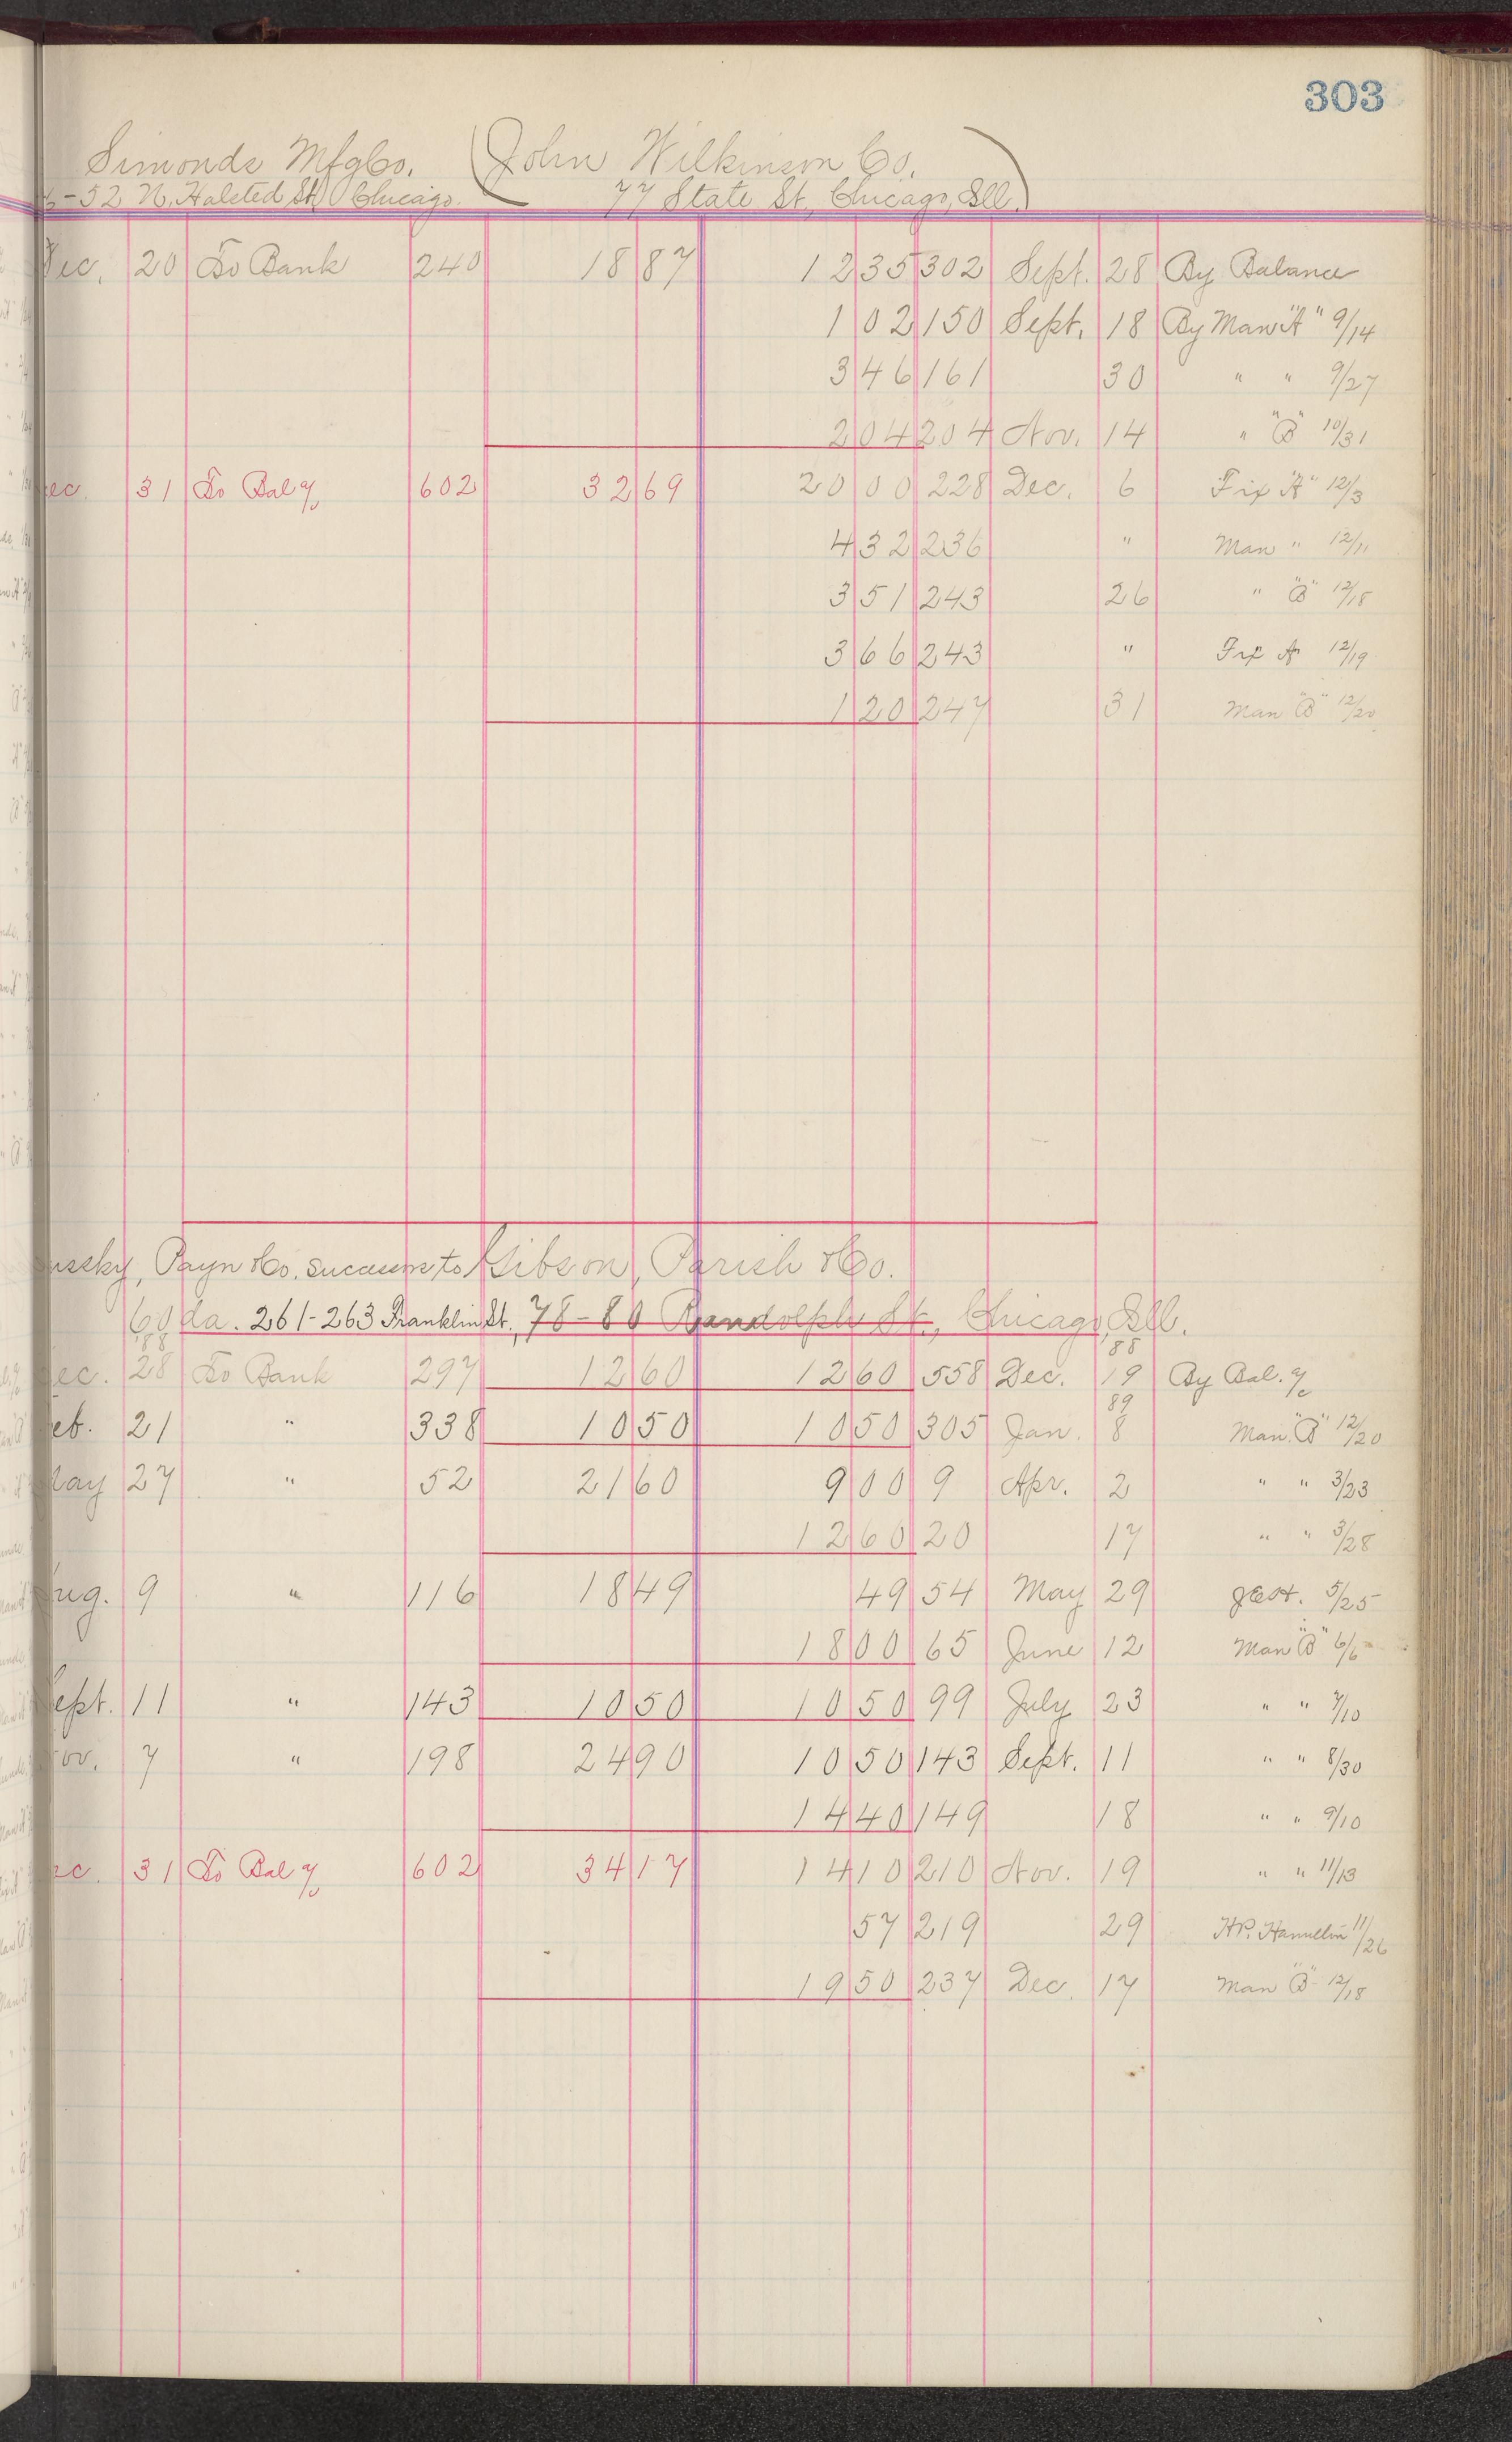 303
Simonds Mfg Co. (John Wilkinson Co.
-52 N. Halsted St. Chicago. 77 State St., Chicago, Ill.)
Dec. 20 To Bank 240 18 87 12 35 302 Sept. 28 By Balance
1 02 150 Sept. 18 By Man "A" 9/14
3 46 161 30 " " 9/27
2 04 204 Nov. 14 " "B" 10/31
ec. 31 To Bal 602 32 69 20 00 228 Dec. 6 Fix "A" 12/3
4 32 236 " Man " 12/11
3 51 243 26 " "B" 12/18
3 66 243 " Fix A 12/19
1 20 247 31 Man "B" 12/20
ssky, Payn & Co. successors to Gibson, Parish & Co.
60 da. 261-263 Franklin St., 78-80 Randolph St., Chicago, Ill.
88 88
ec. 28 To Bank 297 12 60 12 60 558 Dec. 19 By Bal. %
89
eb. 21 " 338 10 50 10 50 305 Jan. 8 Man. "B" 12/20
May 27 " 52 21 60 9 00 9 Apr. 2 " " 3/23
12 60 20 17 " " 3/28
Aug. 9 " 116 18 49 49 54 May 29 5/25
18 00 65 June 12 Man "B" 6/6
Sept. 11 " 143 10 50 10 50 99 July 23 " " 7/10
ov. 7 " 198 24 90 10 50 143 Sept. 11 " " 8/30
14 40 149 18 " " 9/10
ec. 31 To Bal 602 34 17 14 10 210 Nov. 19 " " 11/13
57 219 29 11/26
19 50 237 Dec. 17 Man "B" 12/18